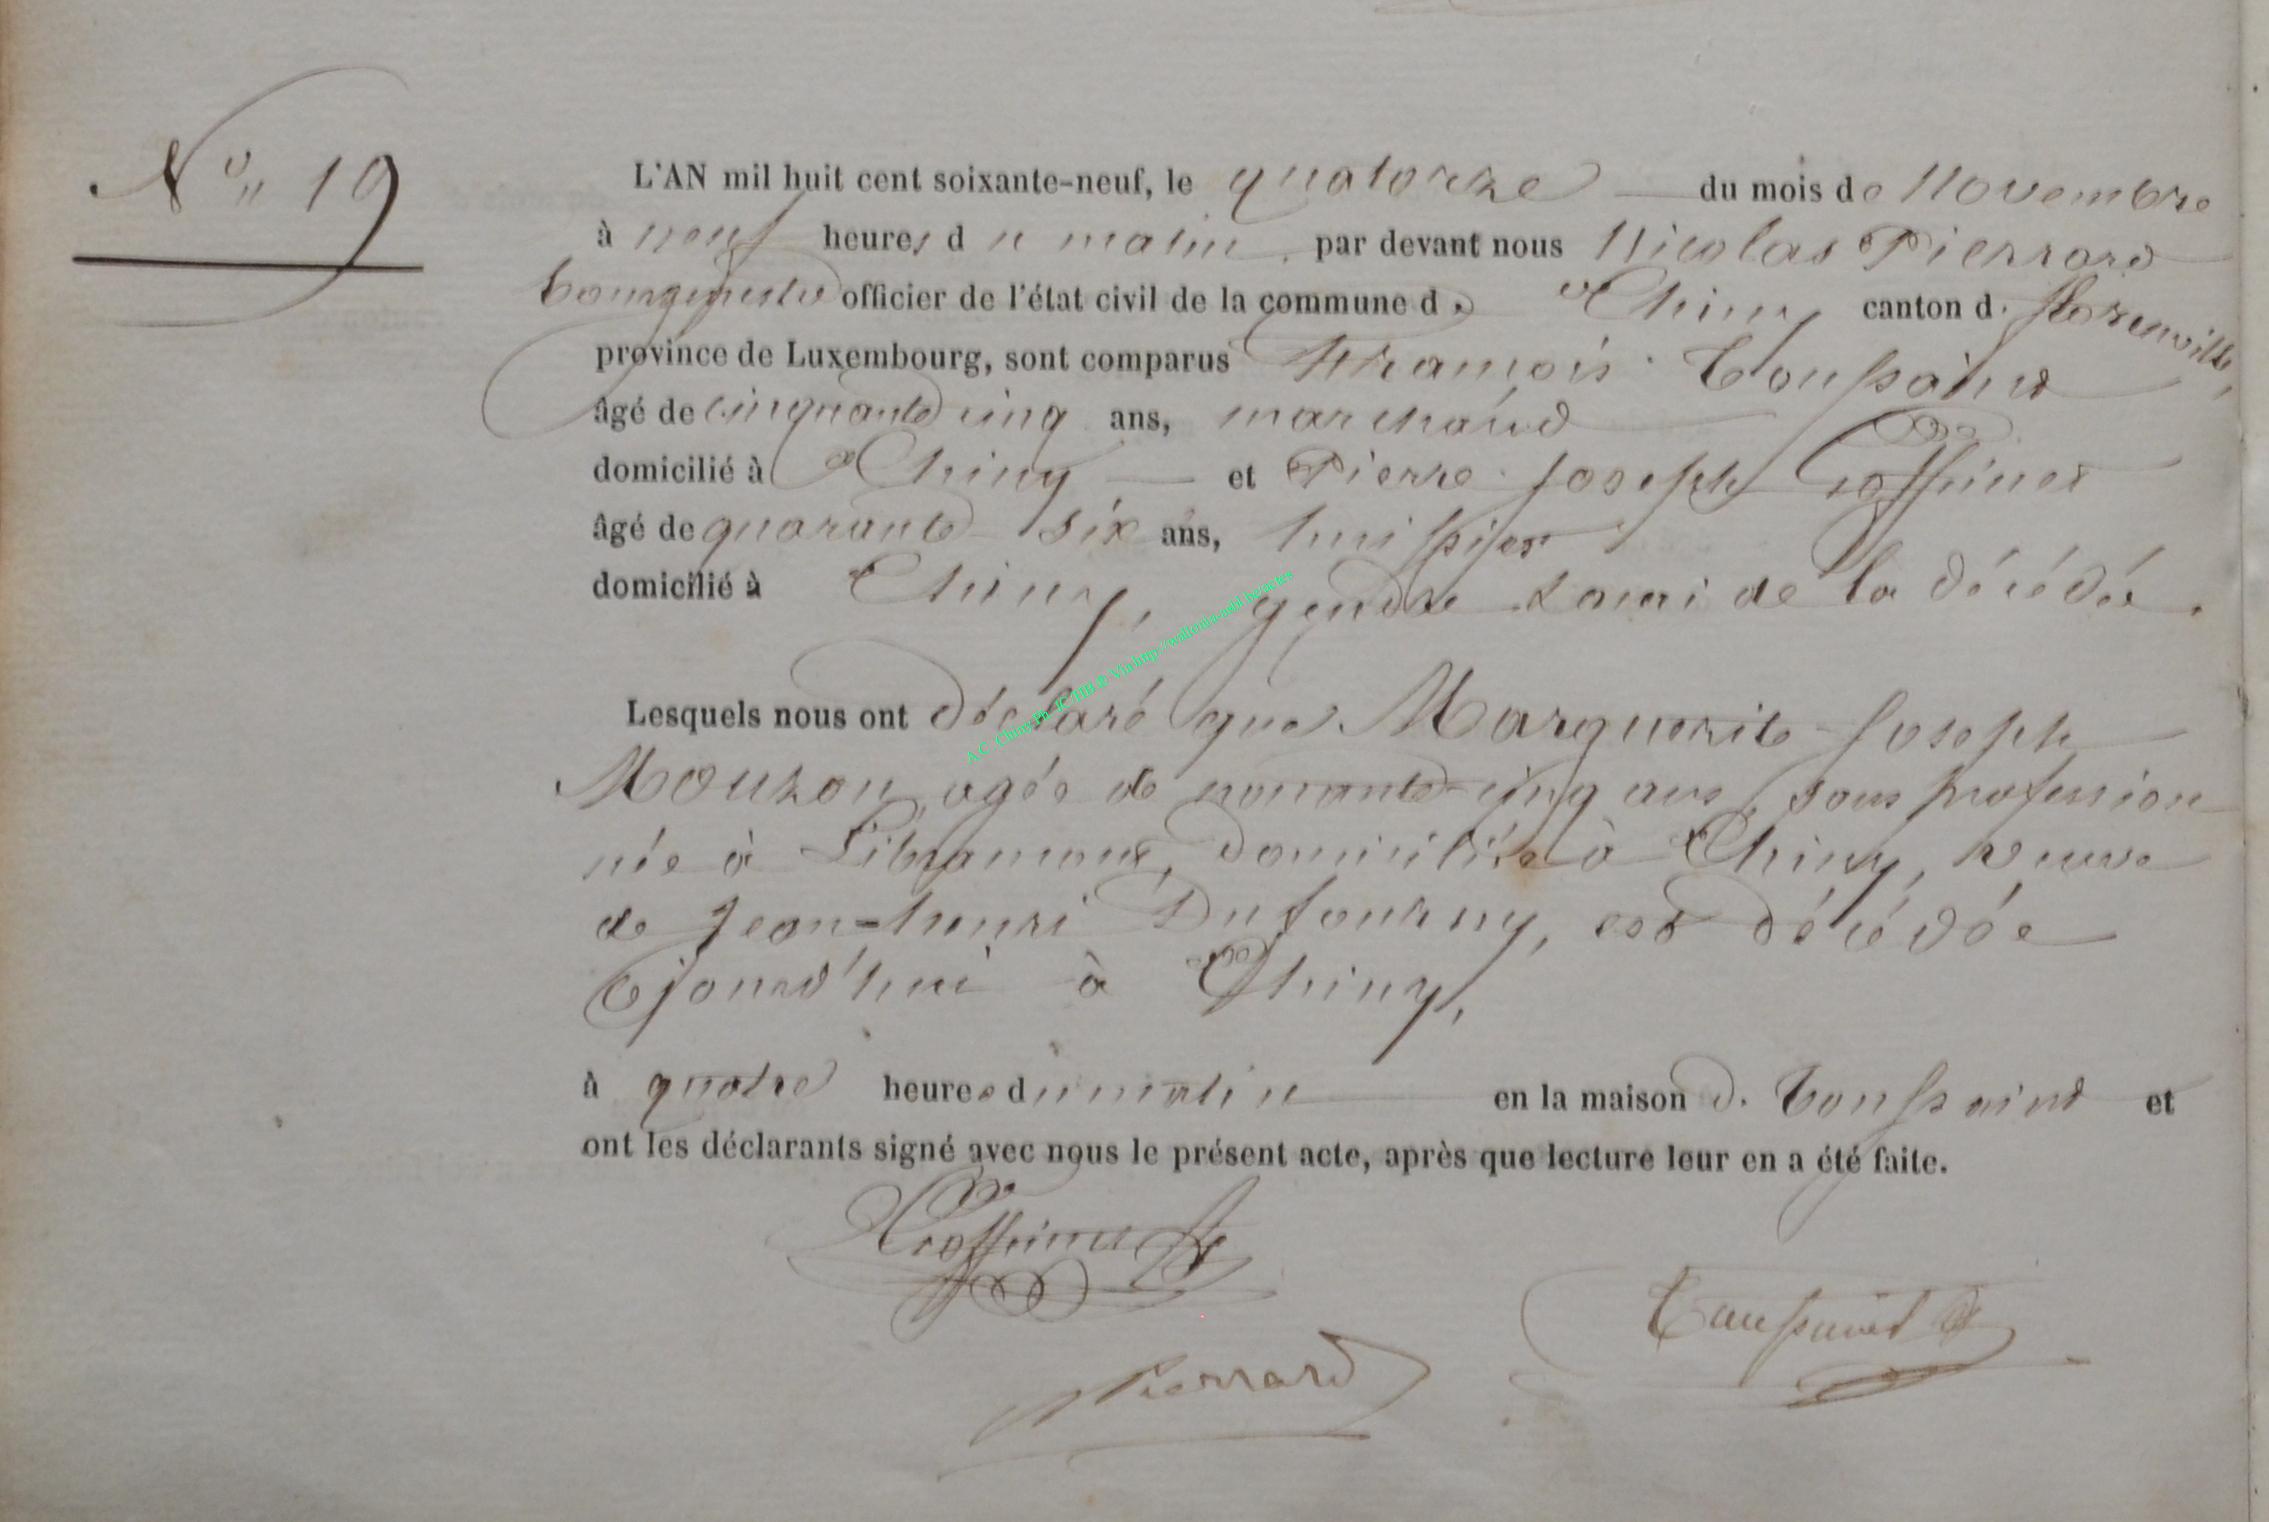 N° 19
L'AN mil huit cent soixante-neuf, le quatorze du mois de Novembre
à neuf heures du matin, par devant nous Nicolas Pierrard
bourgmestre officier de l'état civil de la commune de Chiny canton d. florenville,
province de Luxembourg, sont comparus François Toussaint
âgé de cinquante cinq ans, marchand
domicilié à Chiny et Pierre Joseph
âgé de quarante six ans, huissier
domicilié à Chiny, gendre & ami de la décédée.
Lesquels nous ont déclaré que Marguerite Joseph
Mouzon, agée de nonante cinq ans, sans profession
née à Libramont, domiciliée à Chiny, veuve
de Jean-henri Dufourny, est décédée
ajourd'hui à Chiny,
à quatre heures du matin en la maison d. Toussaint et
ont les déclarants signé avec nous le présent acte, après que lecture leur en a été faite.
Toussaint
Pierrard